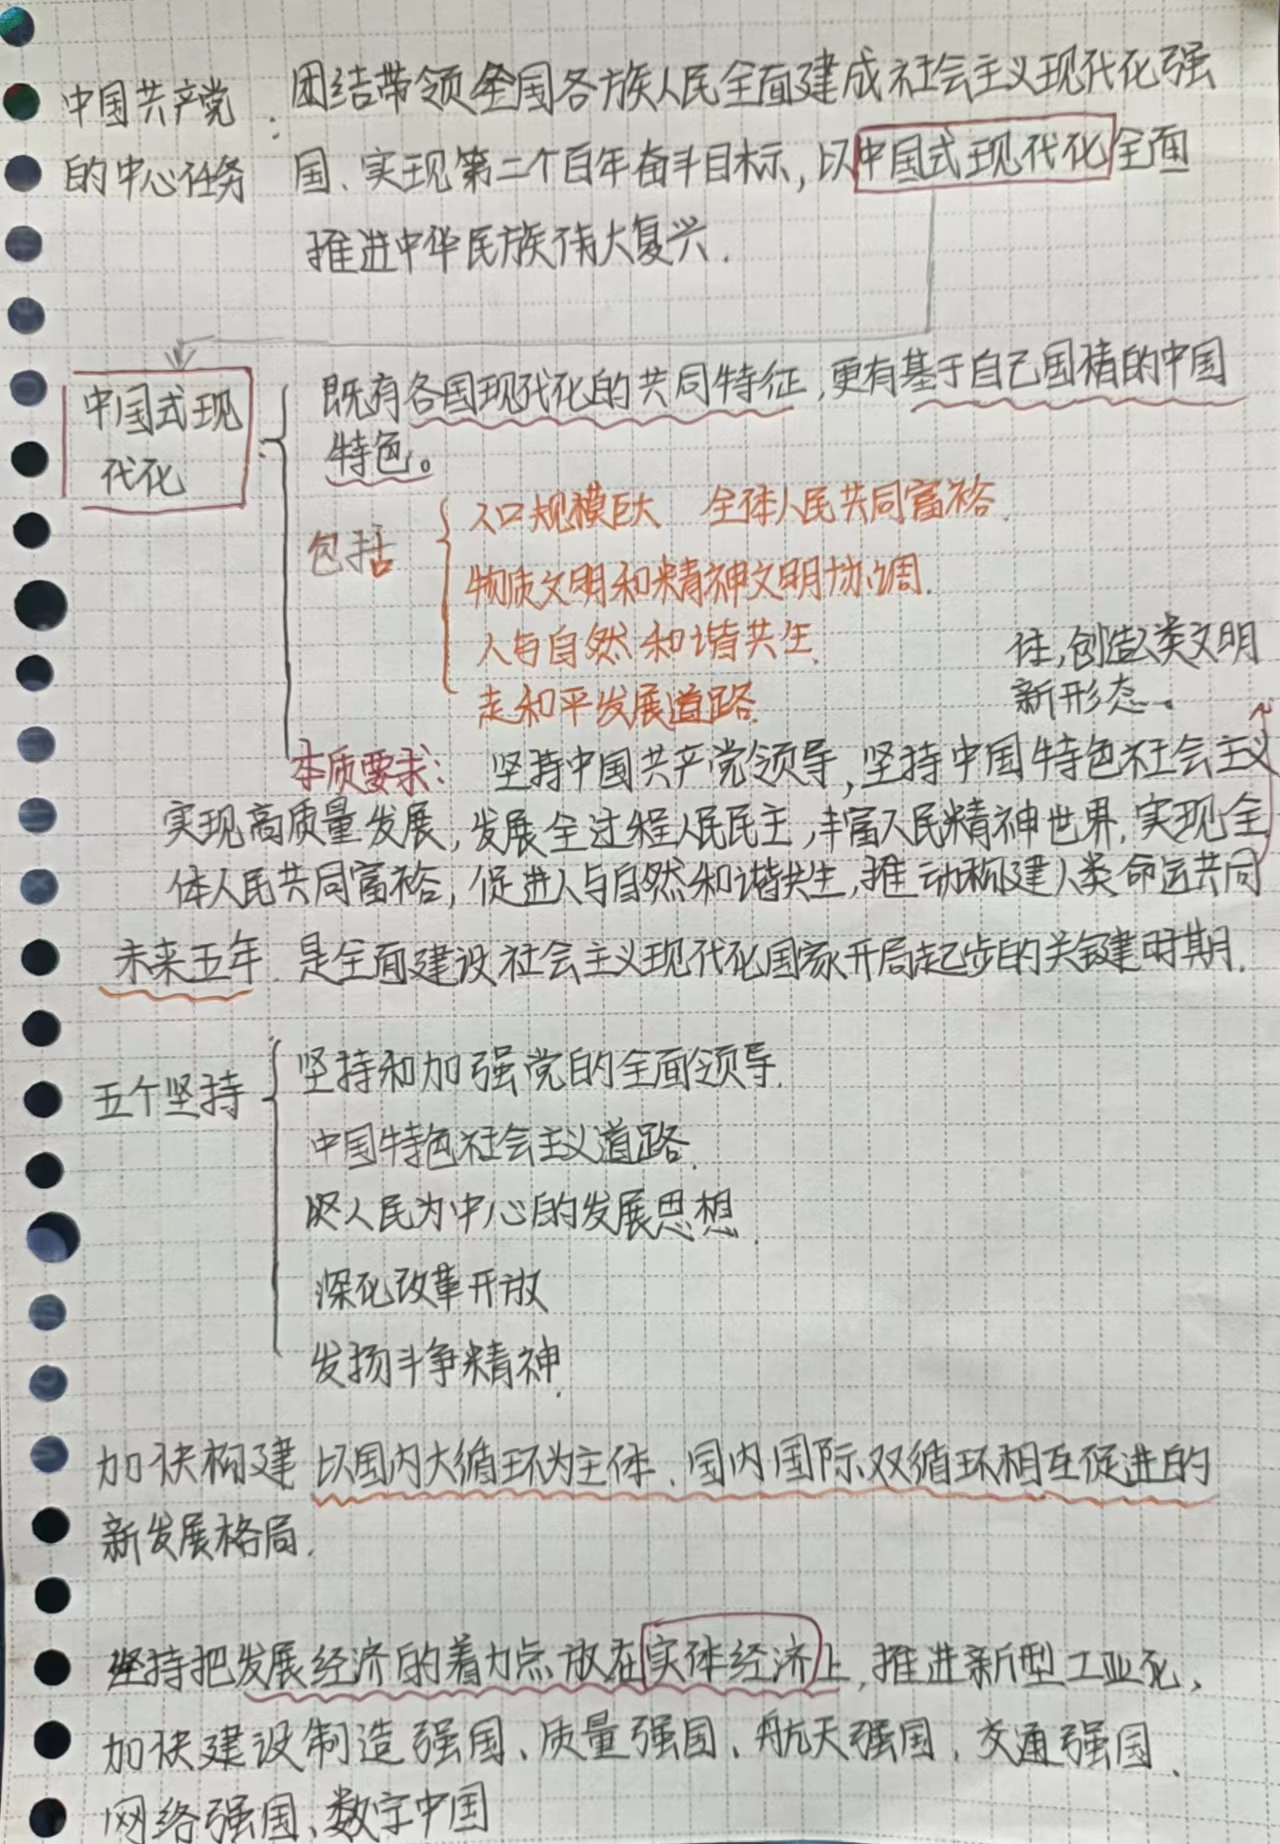 中国共产党
的中心任务
：
团结带领全国各族人民全面建成社会主义现代化强
国、实现第二个百年奋斗目标，以中国式现代化全面
推进中华民族伟大复兴.
中国式现
代化
：
既有各国现代化的共同特征，更有基于自己国情的中国
特色。
包括
人口规模巨大 全体人民共同富裕.
物质文明和精神文明协调.
人与自然和谐共生.
走和平发展道路.
体,创造人类文明
新形态。
本质要求： 坚持中国共产党领导，坚持中国特色社会主义
实现高质量发展，发展全过程人民民主，丰富人民精神世界.实现全
体人民共同富裕，促进人与自然和谐共生，推动构建人类命运共同
未来五年.是全面建设社会主义现代化国家开局起步的关键时期.
五个坚持
坚持和加强党的全面领导.
中国特色社会主义道路.
人民为中心的发展思想.
深化改革开放
发扬斗争精神.
加快构建 以国内大循环为主体、国内国际双循环相互促进的
新发展格局.
坚持把发展经济的着力点放在实体经济上，推进新型工业化，
加快建设制造强国、质量强国、航天强国、交通强国、
网络强国、数字中国